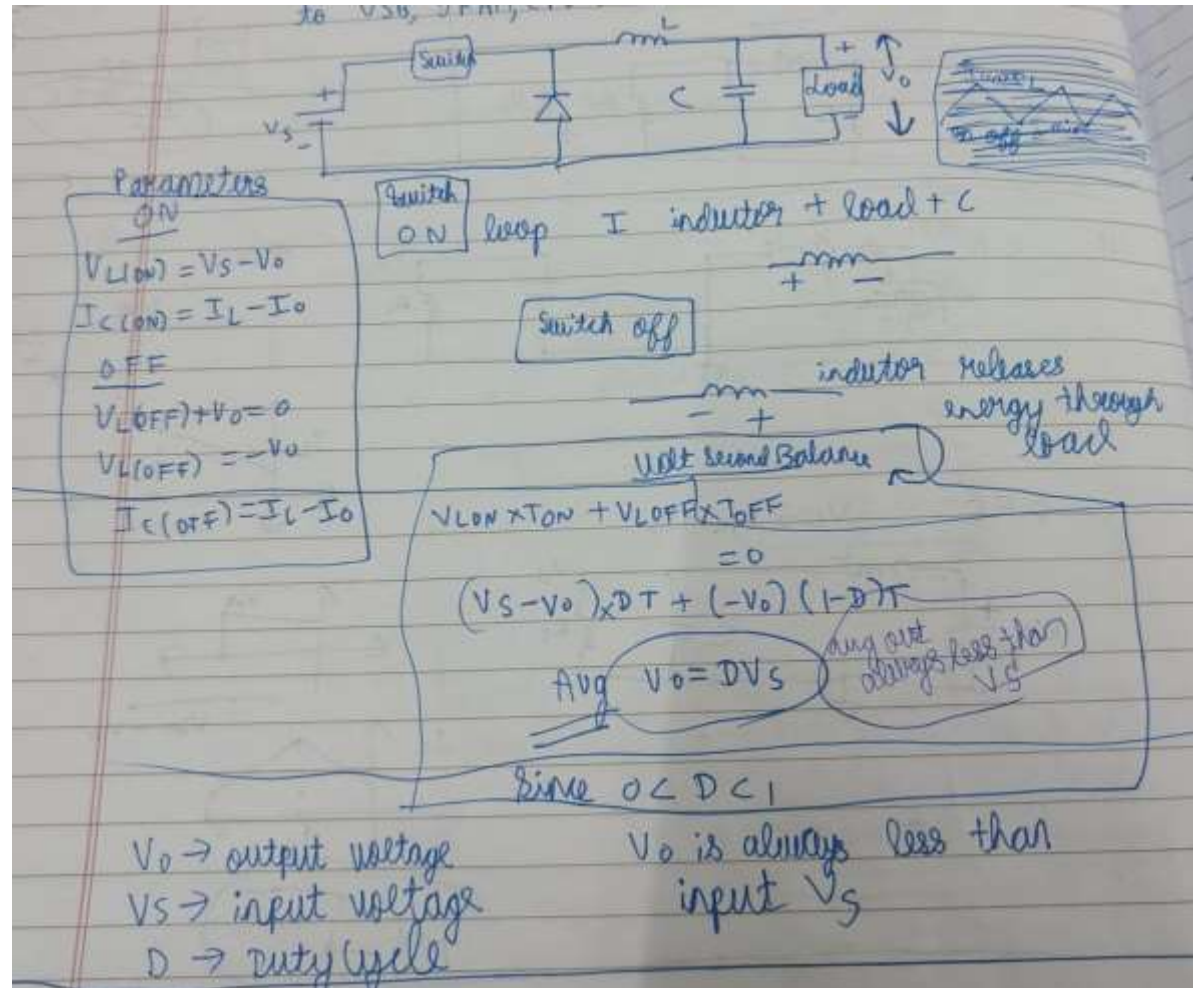 to USB,
Switch
L
+
Vs
-
C
+
Load
-
Vo
Parameters
ON
VL(ON) = Vs - Vo
Ic(ON) = IL - Io
OFF
VL(OFF) + Vo = 0
VL(OFF) = -Vo
Ic(OFF) = IL - Io
Switch
ON
loop I inductor + load + C
+ -
Switch off
- +
indutor releases
energy through
load
Volt Second Balance
VLON X TON + VLOFF X TOFF
= 0
(Vs - Vo) x DT + (-Vo) (1-D)T
Avg Vo = DVs
avg out
always less than
Vs
Since 0 < D < 1
Vo → output voltage
Vs → input voltage
D → Duty Cycle
Vo is always less than
input Vs